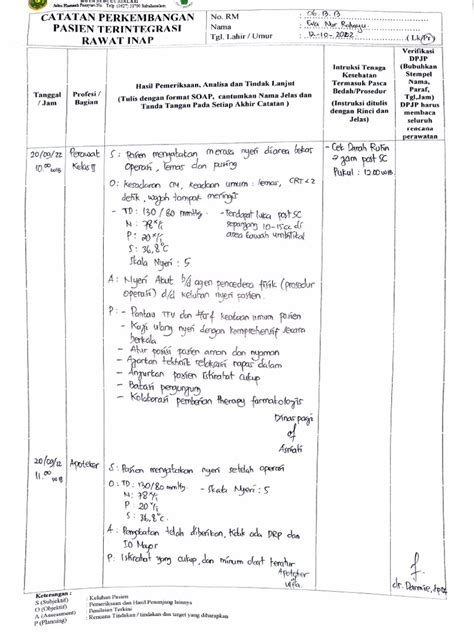 CATATAN PERKEMBANGAN
PASIEN TERINTEGRASI
RAWAT INAP
No. RM : 06.13.13
Nama :
Tgl. Lahir / Umur : 12-10-2002 (Lk/Pr)
Tanggal
/ Jam
Profesi /
Bagian
Hasil Pemeriksaan, Analisa dan Tindak Lanjut
(Tulis dengan format SOAP, cantumkan Nama Jelas dan
Tanda Tangan Pada Setiap Akhir Catatan )
Intruksi Tenaga
Kesehatan
Termasuk Pasca
Bedah/Prosedur
(Instruksi ditulis
dengan Rinci dan
Jelas)
Verifikasi
DPJP
(Bubuhkan
Stempel
Nama,
Paraf,
Tgl,Jam)
DPJP harus
membaca
seluruh
rencana
perawatan
20/09/22
10.00 WIB
Perawat
Kelas II
S : Pasien mengatakan merasa nyeri diarea bekas
operasi, lemas dan pusing
O : Kesadaran CM, keadaan umum : lemas, CRT < 2
detik, wajah tampak meringis
- TD : 130 / 80 mmHg
N : 78 x/i
P : 20 x/i
S : 36,8°C
Skala Nyeri : 5
- Terdapat luka post SC
sepanjang 10-15 cm di
area bawah umbilikal
A : Nyeri Akut b/d agen pencedera fisik (prosedur
operasi) d/d keluhan nyeri pasien.
P : - Pantau TTV dan keadaan umum pasien
- Kaji ulang nyeri dengan komprehensif secara
berkala
- Atur posisi pasien aman dan nyaman
- Ajarkan tekhnik relaksasi napas dalam
- Anjurkan pasien istirahat cukup
- Batasi pengunjung
- Kolaborasi pemberian therapy farmakologis
Dinas pagi
Asriati
- Cek Darah Rutin
2 jam post SC
Pukul : 12.00 WIB
20/09/22
11.00 WIB
Apoteker
S : Pasien mengatakan nyeri setelah operasi
O : TD : 130/80 mmHg - Skala Nyeri : 5
N : 78 x/i
P : 20 x/i
S : 36,8°C
A : Pengobatan telah diberikan, tidak ada DRP dan
IO Mayor
P : Istirahat yang cukup, dan minum obat teratur
Apoteker
Keterangan :
S (Subjektif) : Keluhan Pasien
O (Objektif) : Pemeriksaan dan Hasil Penunjang lainnya
A (Assesment) : Penilaian Terkini
P (Planning) : Rencana Tindakan / tindakan dan target yang diharapkan